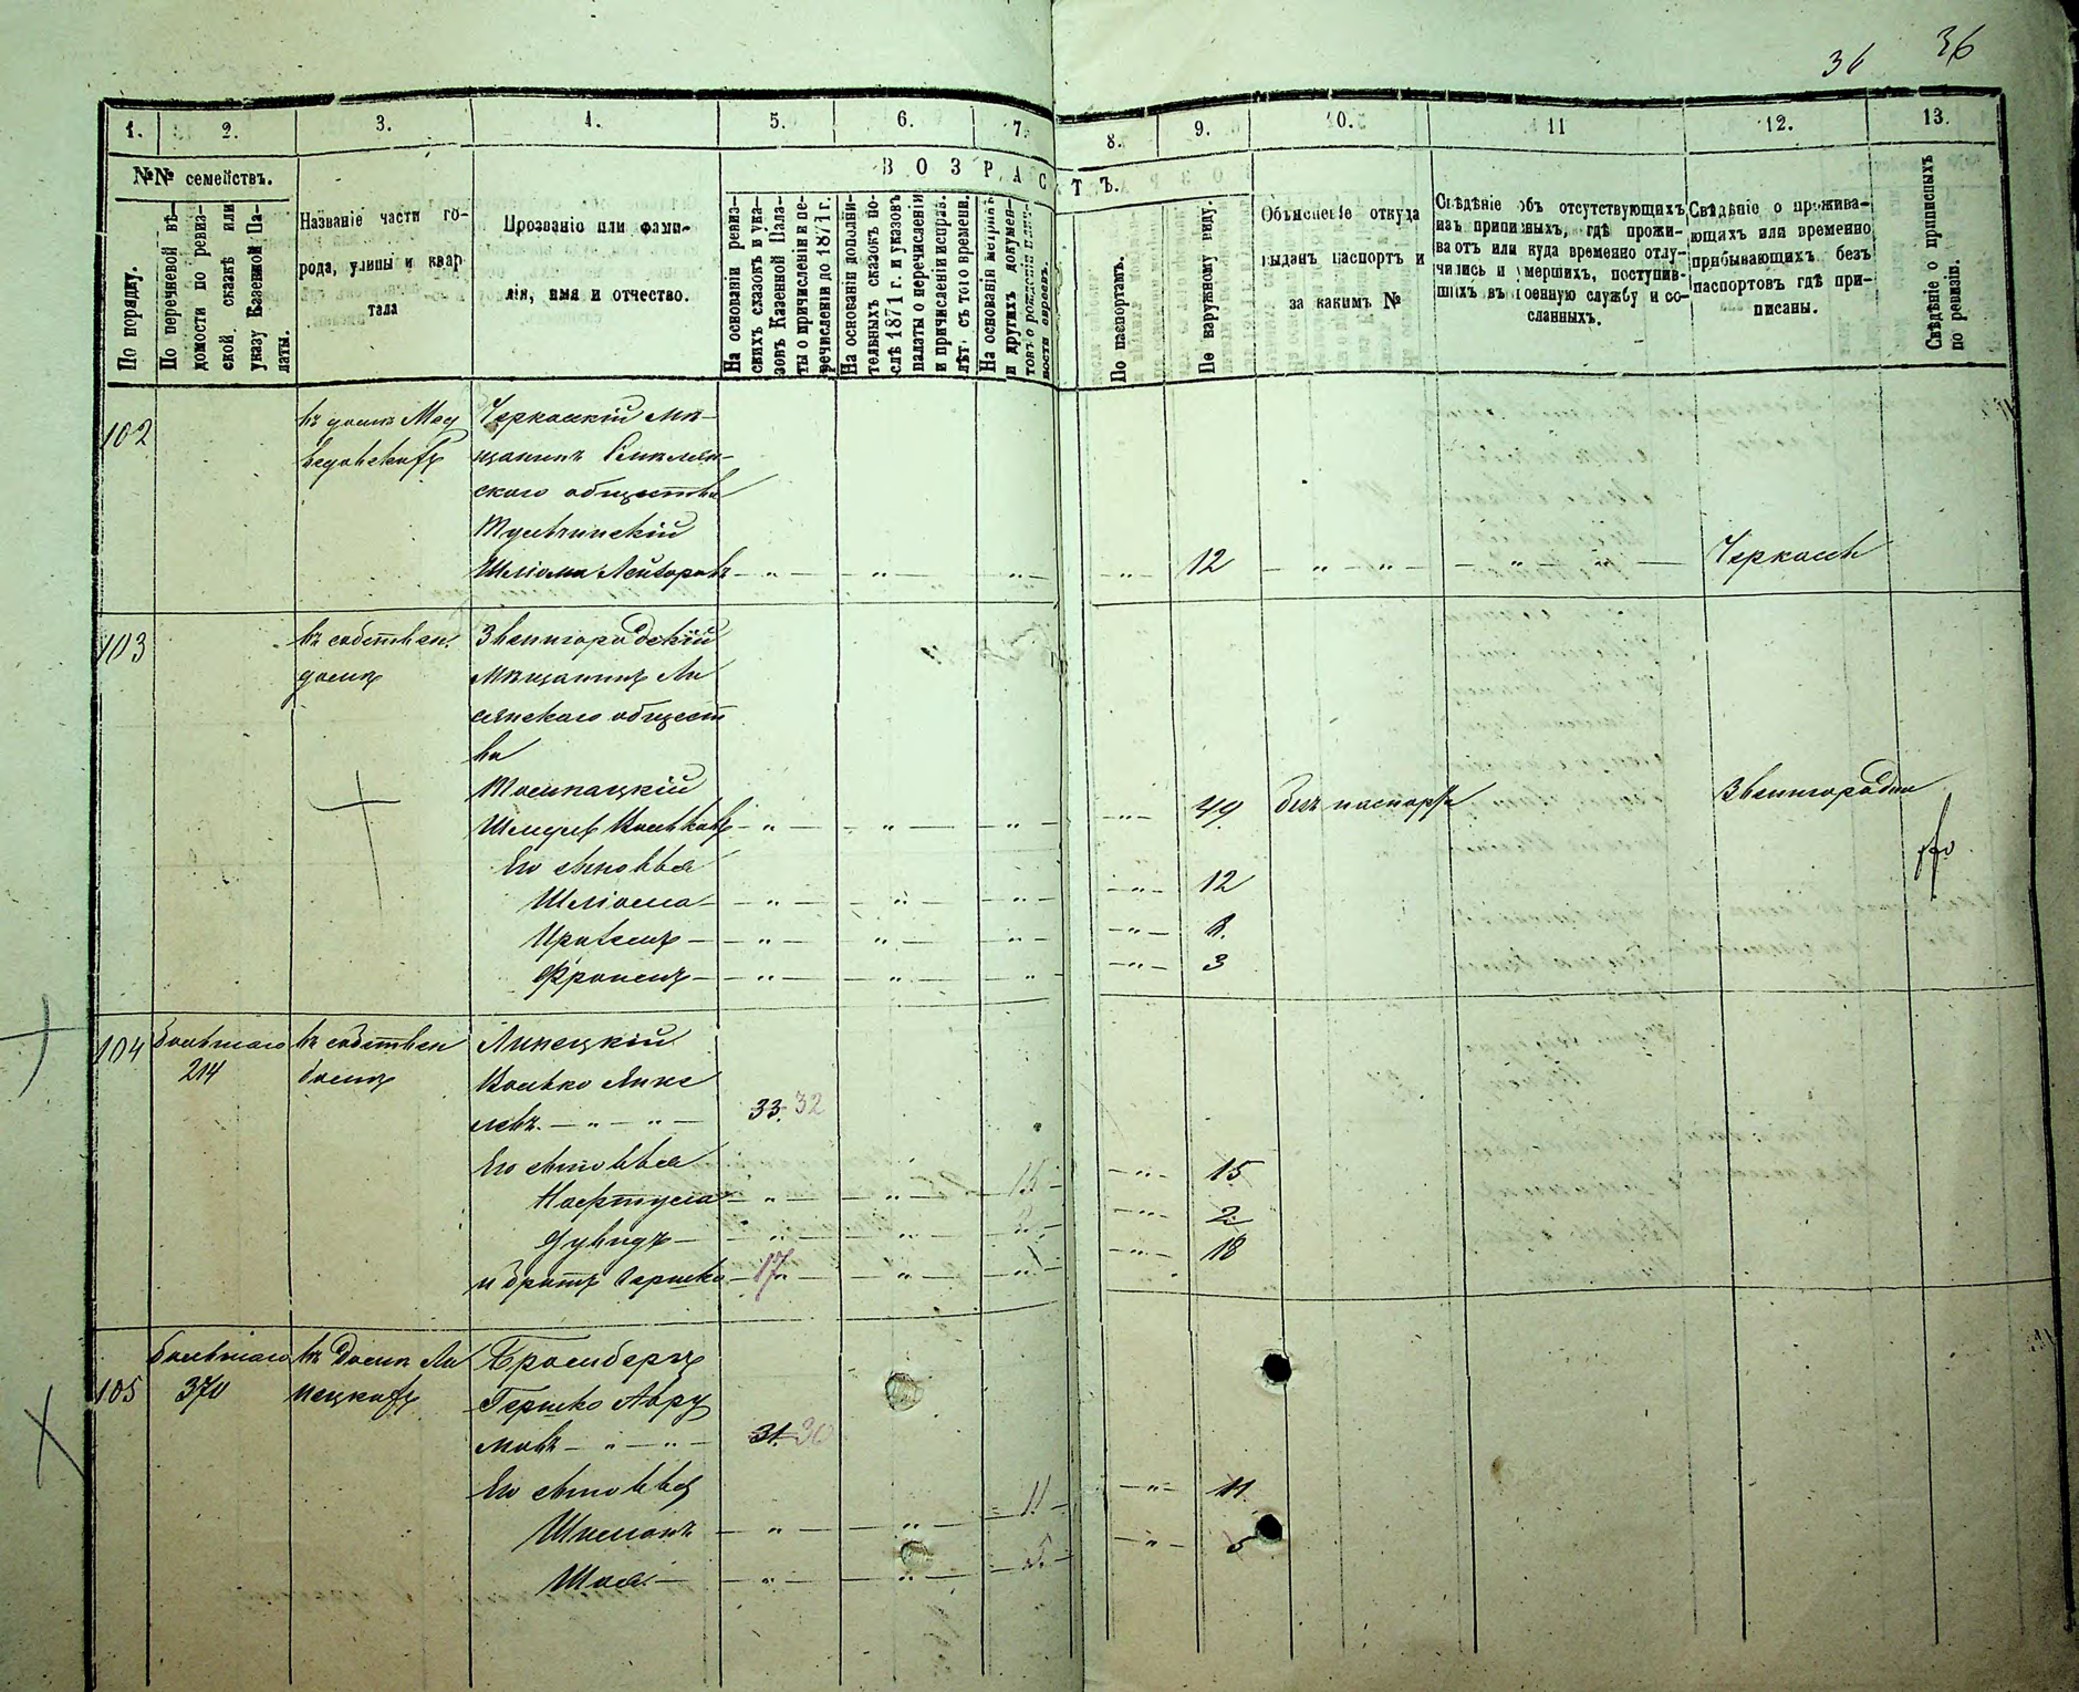 36 36
1. 2. 3. 4. 5. 6. 7. 8. 9. 10. 11 12. 13.
№№ семействъ.
ВОЗРАСТЪ.
По порядку.
По перечневой вѣ-
домости по ревиз-
ской сказкѣ или
указу Казенной Па-
латы.
Названіе части го-
рода, улицы и квар
тала
Прозваніе или фами-
лія, имя и отчество.
На основаніи ревиз-
скихъ сказокъ и ука-
зовъ Казенной Пала-
ты о причисленіи и пе-
речисленіи до 1871 г.
На основаніи дополни-
тельныхъ сказокъ по-
слѣ 1871 г. и указовъ
палаты о перечисленіи
и причисленіи исправ.
лѣт. съ того времени.
На основаніи метрикъ
и другихъ докумен-
товъ о рожденіи
По паспортамъ.
По наружному виду.
Объясненіе откуда
выданъ паспортъ и
за какимъ №
Свѣдѣніе объ отсутствующихъ
изъ приписныхъ, гдѣ прожи-
ваютъ или куда временно отлу-
чились и умершихъ, поступив-
шихъ въ военную службу и со-
сланныхъ.
Свѣдѣніе о прожива-
ющихъ или временно
прибывающихъ безъ
паспортовъ гдѣ при-
писаны.
Свѣдѣніе о приписныхъ
по ревизіи.
102 въ домѣ Мед Черкасскій мѣ-
ведовскаго щанинъ
скаго общества
Тульчинскій
Шліома Лейзоровъ — „ — — „ — — „ — — „ — 12 — „ — „ — — „ — „ — Черкассы
103 въ собствен. Звенигородскій
домѣ мѣщанинъ Ли
сянскаго общест
ва
Томпацкій
Шмулъ Вольковъ — „ — — „ — — „ — — „ — 49 безъ паспорта Звенигородка
Его сыновья
Шліома — — „ — — „ — — „ — — „ — 12
Сруль — — „ — — „ — — „ — — „ — 8.
Фроимъ — — „ — — „ — „ — „ — 3
104 Большаго въ собствен Липецкій
214 домѣ Волько
левъ. — „ — „ — 33. 32
Его сыновья
— „ — — „ — 15 — — „ — 15
Дувидъ — „ — „ — 2. — — „ — 2
и братъ Гершко — 17 — — „ — — „ — — „ — 18
Большаго въ домѣ Ли Бромбергъ
105 370 пецкаго Гершко Авру
мовъ — „ — „ — 31. 30
Его сыновья
Шимонъ — „ — — „ — 11 — — „ — 11
Шая — — „ — — „ — 5 — — „ — 5